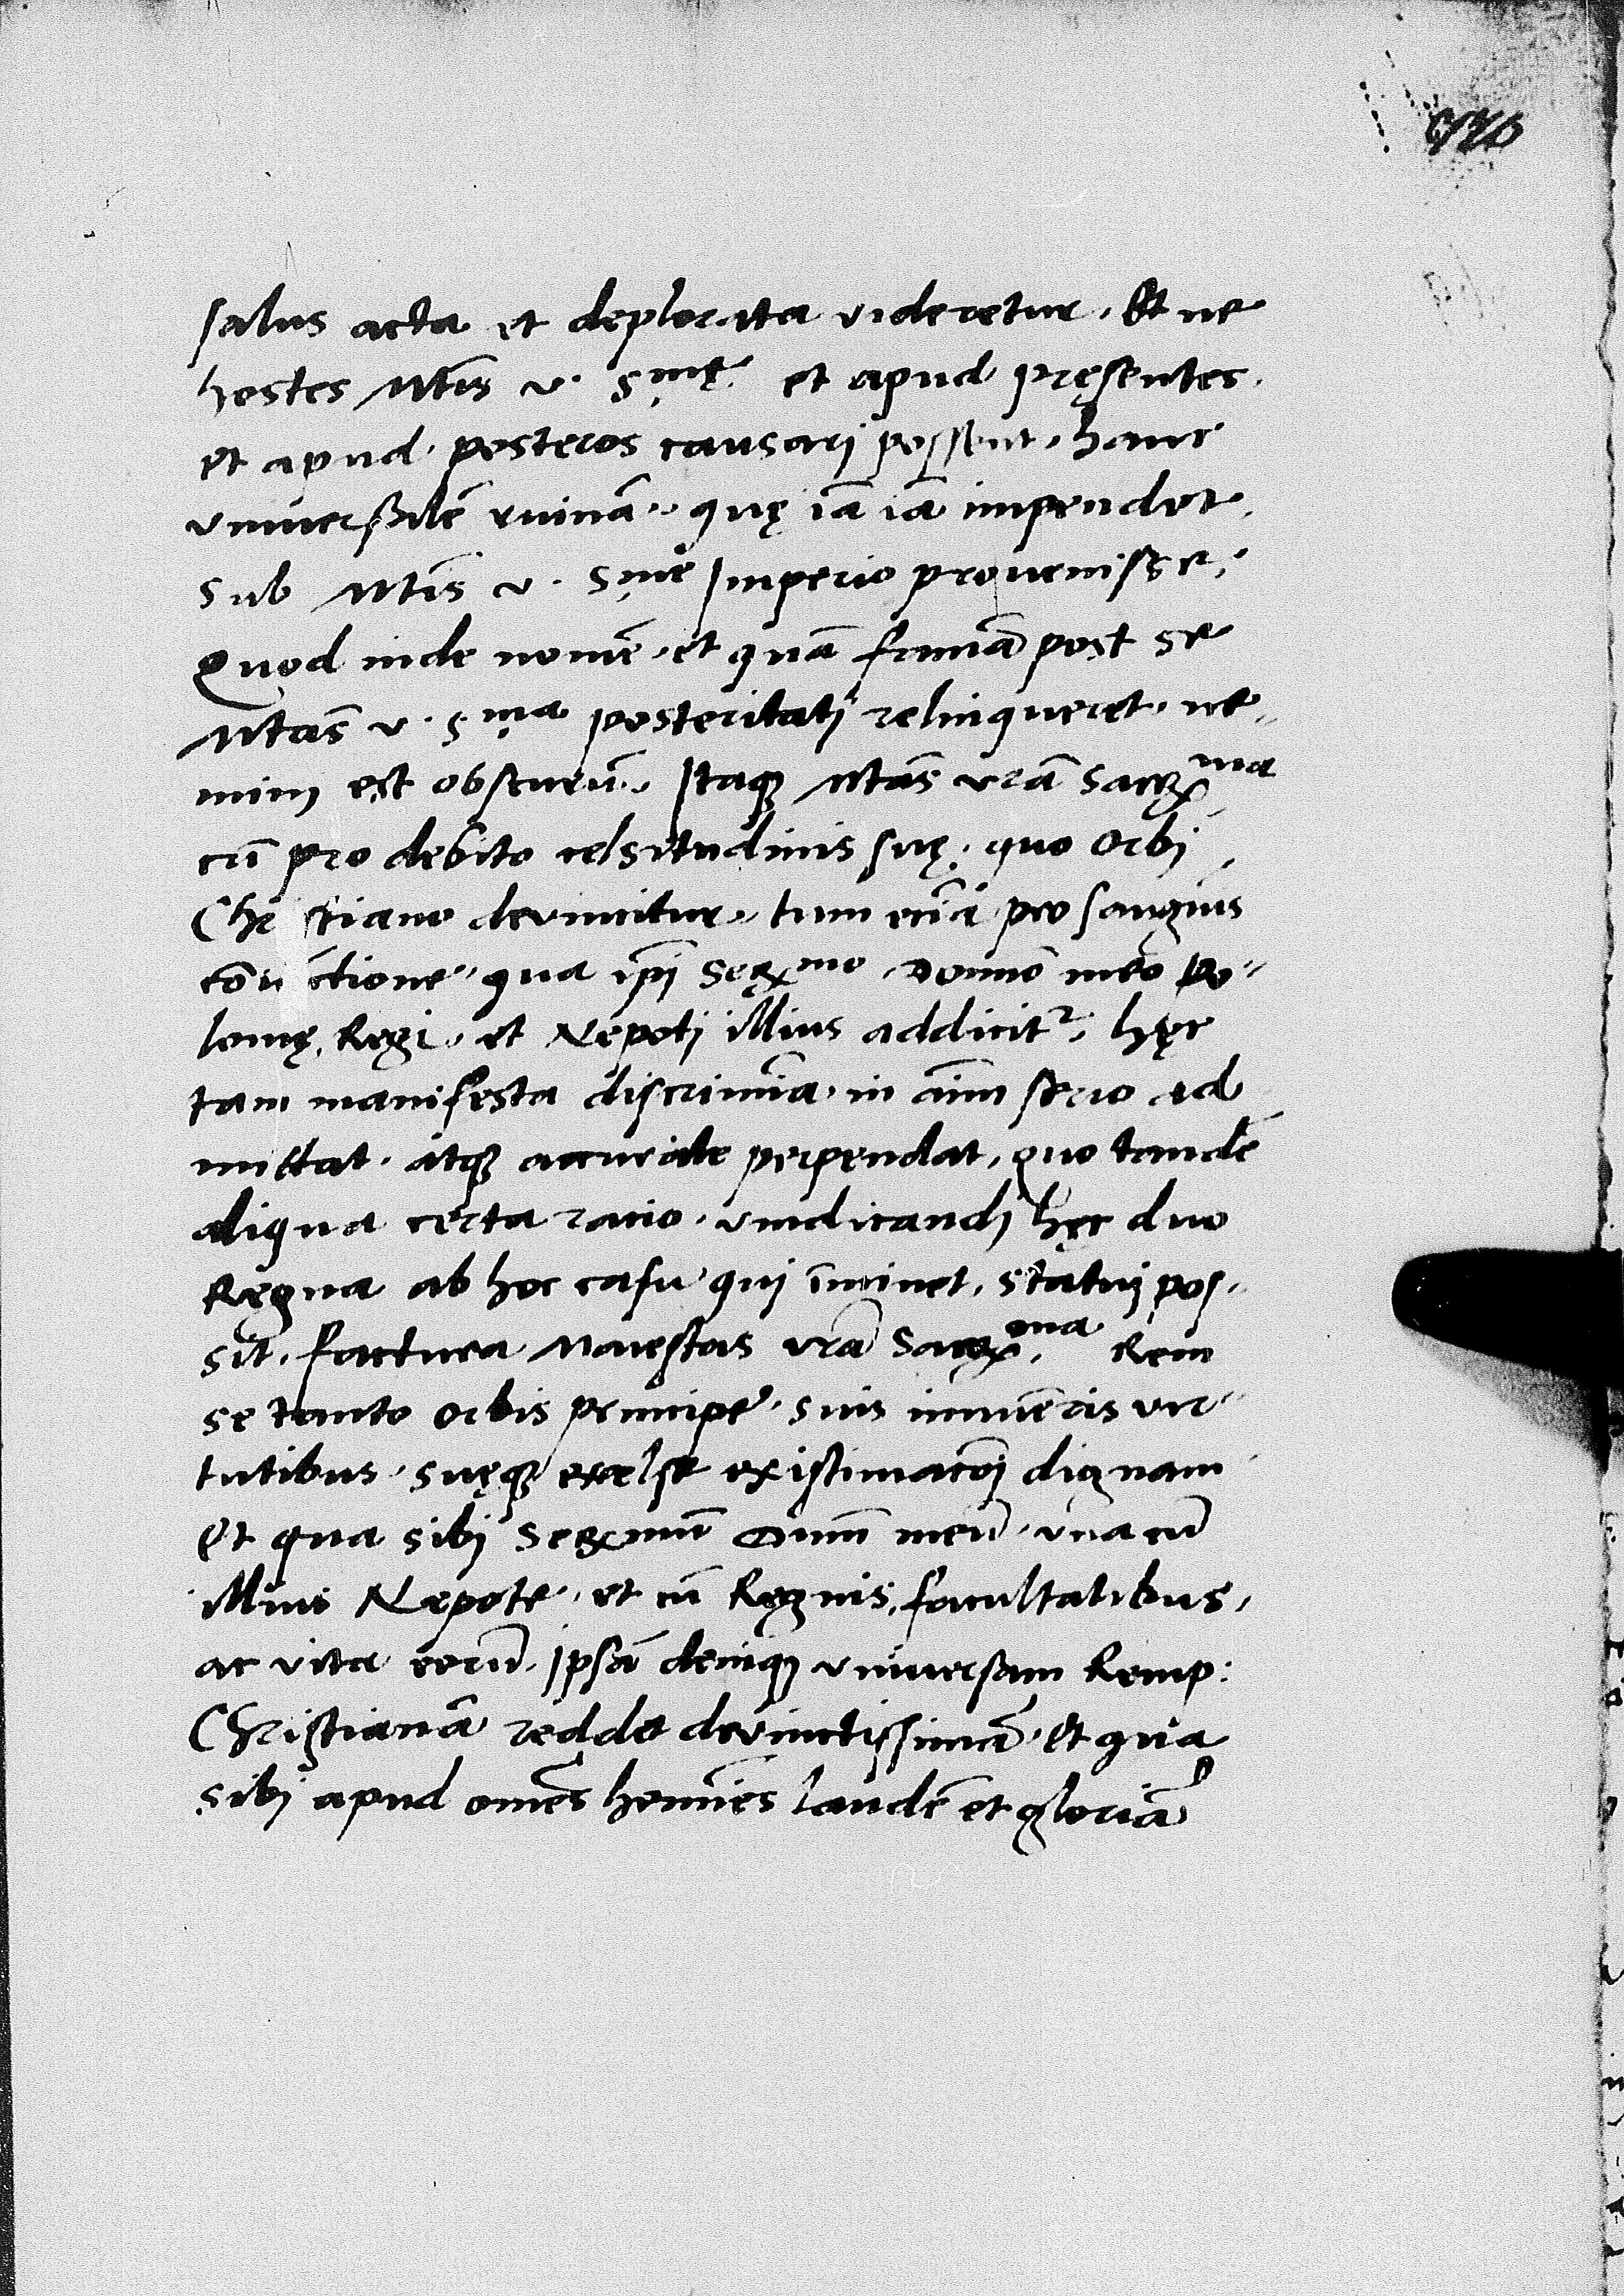 salus acta et deplorata videretur. Et ne
hostes Mtis v. Smę. et apud pręsentes.
et apud posteros causari possent, hanc
vniuersalē ruinā, quę iā iā impendet,
sub Mtis v. Sme Imperio prouenisse,
Quod inde nomē, et quā famā post se
Mtas v. Sma posteritati relinqueret, ne„
mini est obscurū. Itaq; Mtas vrā Sacr ma
cū pro debito celsitudinis suę, quo Orbi
Christiano deuincitur, tum eciā pro sanguīs
cōiūctione, qua ipi Ser mo Domino meo Po„
lonię Regi, et Nepoti illius addicit², hęc
tam manifesta discrimīa, in aīm serio ad
mittat, atq; accurate perpendat, quo tandē
aliqua certa racio, vindicandi hęc duo
Regna ab hoc casu qui īminet, statui pos„
sit, factura Maiestas vrā Sacr ma, Rem
se tanto Orbis principe, suis innumēris vir
tutibus, suęq; excelse existimacōi dignam
Et qua sibi Sermum Dnum meū, vna cū
illius Nepote, et cū Regnis, facultatibus,
ac vita eorū, ipsā deniq; vniuersam Remp:
Christianā reddet deuinctissimā, Et qua
sibi apud omēs homīes laudē et gloriā